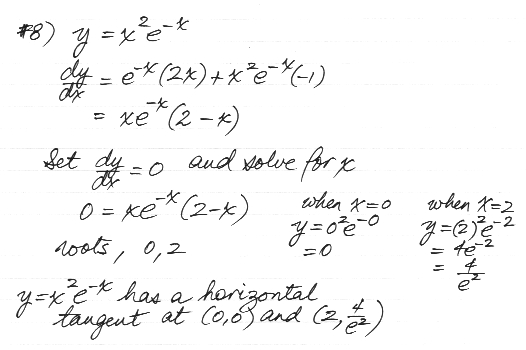 #8) y = x²e^-x
dy/dx = e^-x(2x) + x²e^-x(-1)
= xe^-x(2-x)
Set dy/dx = 0 and solve for x
0 = xe^-x(2-x)
roots, 0, 2
when x=0
y=0²e^-0
=0
when x=2
y=(2)²e^-2
= 4e^-2
= 4/e²
y=x²e^-x has a horizontal
tangent at (0,0) and (2, 4/e²)